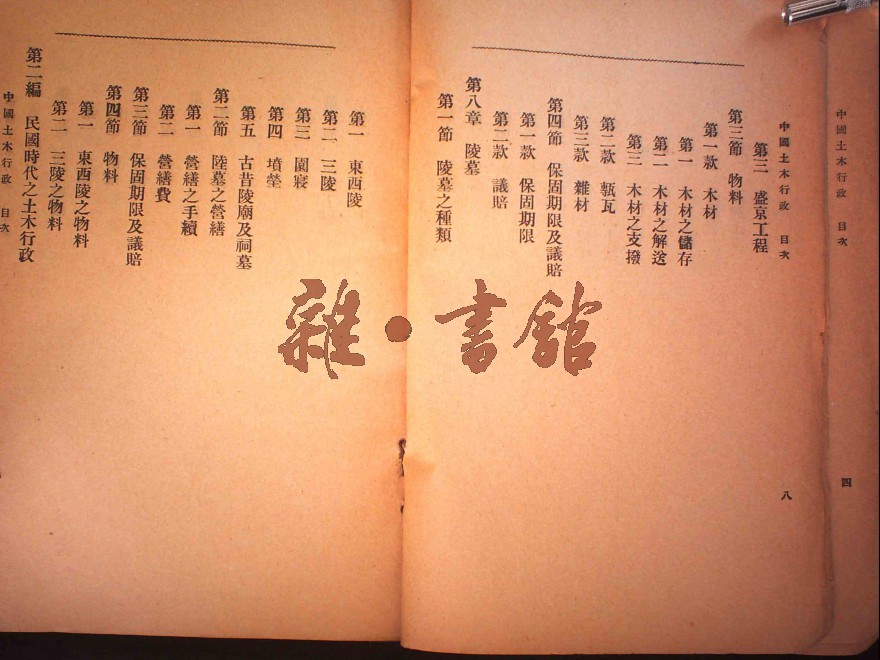 中國土木行政 目次
四
中國土木行政 目次
八
第三 盛京工程
第三節 物料
第一款 木材
第一 木材之儲存
第二 木材之解送
第三 木材之支撥
第二款 甎瓦
第三款 雜材
第四節 保固期限及議賠
第一款 保固期限
第二款 議賠
第八章 陵墓
第一節 陵墓之種類
第一 東西陵
第二 三陵
第三 園寢
第四 墳塋
第五 古昔陵廟及祠墓
第二節 陸墓之營繕
第一 營繕之手續
第二 營繕費
第三節 保固期限及議賠
第四節 物料
第一 東西陵之物料
第二 三陵之物料
第二編 民國時代之土木行政
中國土木行政 目次
雜·書館